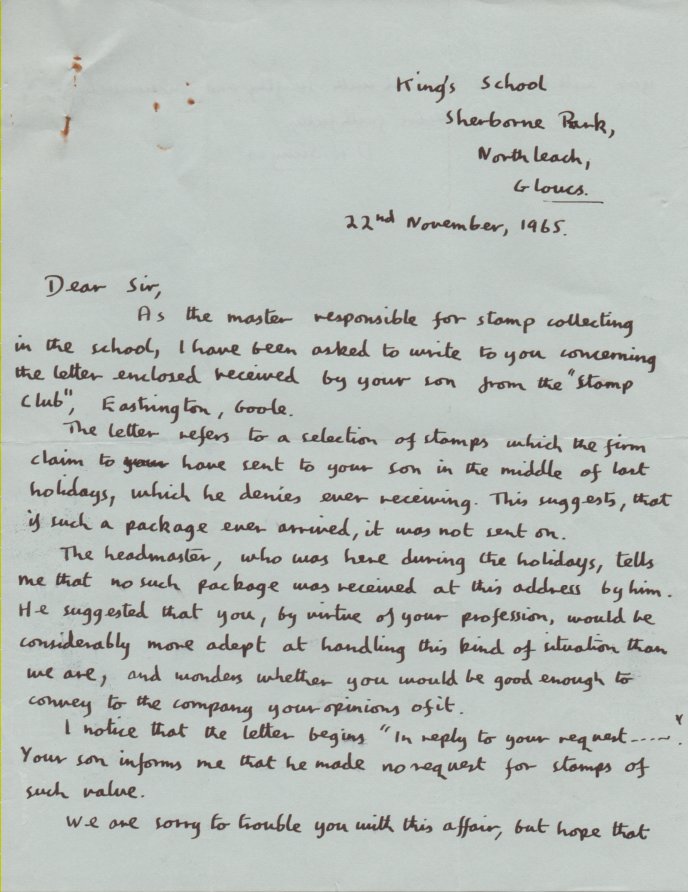 King's School
Sherborne Park,
Northleach,
Gloucs.
22nd November, 1965.
Dear Sir,
As the master responsible for stamp collecting
in the school, I have been asked to write to you concerning
the letter enclosed received by your son from the "Stamp
Club", Eastrington, Goole.
The letter refers to a selection of stamps which the firm
claim to your have sent to your son in the middle of last
holidays, which he denies ever receiving. This suggests, that
if such a package ever arrived, it was not sent on.
The headmaster, who was here during the holidays, tells
me that no such package was received at this address by him.
He suggested that you, by virtue of your profession, would be
considerably more adept at handling this kind of situation than
we are, and wonders whether you would be good enough to
convey to the company your opinions of it.
I notice that the letter begins "In reply to your request-----".
Your son informs me that he made no request for stamps of
such value.
We are sorry to trouble you with this affair, but hope that